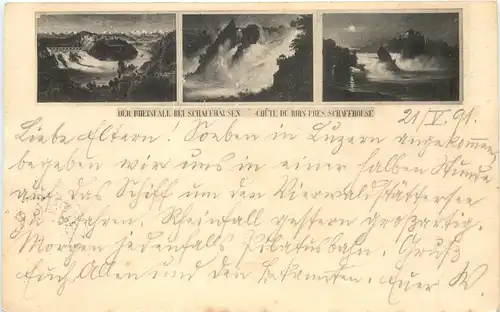 DER RHEINFALL BEI SCHAFFHAUSEN CHÛTE DU RHIN PRES SCHAFFHOUSE
21/V. 91.
Liebe Eltern! Soeben in Luzern angekommen
begeben wir uns in einer halben Stunde
auf das Schiff um den Vierwaldstättersee
zu befahren. Rheinfall gestern großartig.
Morgen jedenfalls Pilatusbahn. Gruß
Euch Allen und den Bekannten. Euer W.